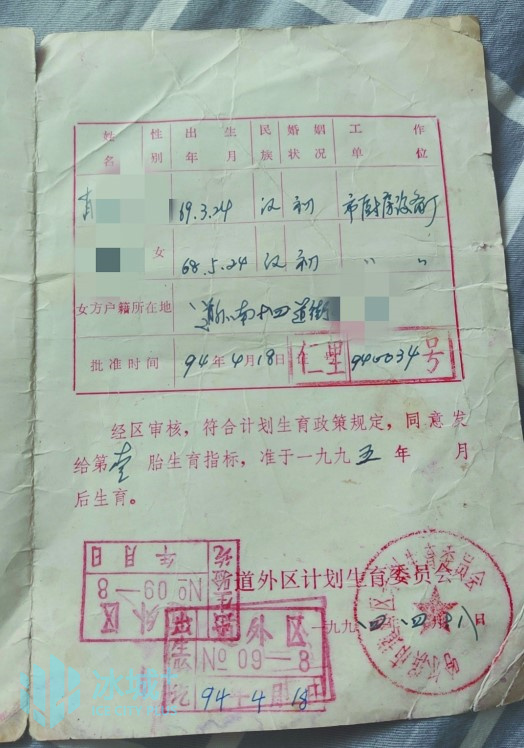 姓名 性别 出生年月 民族 婚姻状况 工作单位
69.3.24 汉 初 市厨房设备厂
女 68.5.24 汉 初 〃 〃
女方户籍所在地 道外南十四道街
批准时间 94年4月18日 仁里 940034号
经区审核，符合计划生育政策规定，同意发
给第壹胎生育指标，准于一九九五年 月
后生育。
年月日
外区
No 09—8
道外区计划生育委员会
一九九四年四月十八日
外区
No 09—8
94 4月18日
冰城+